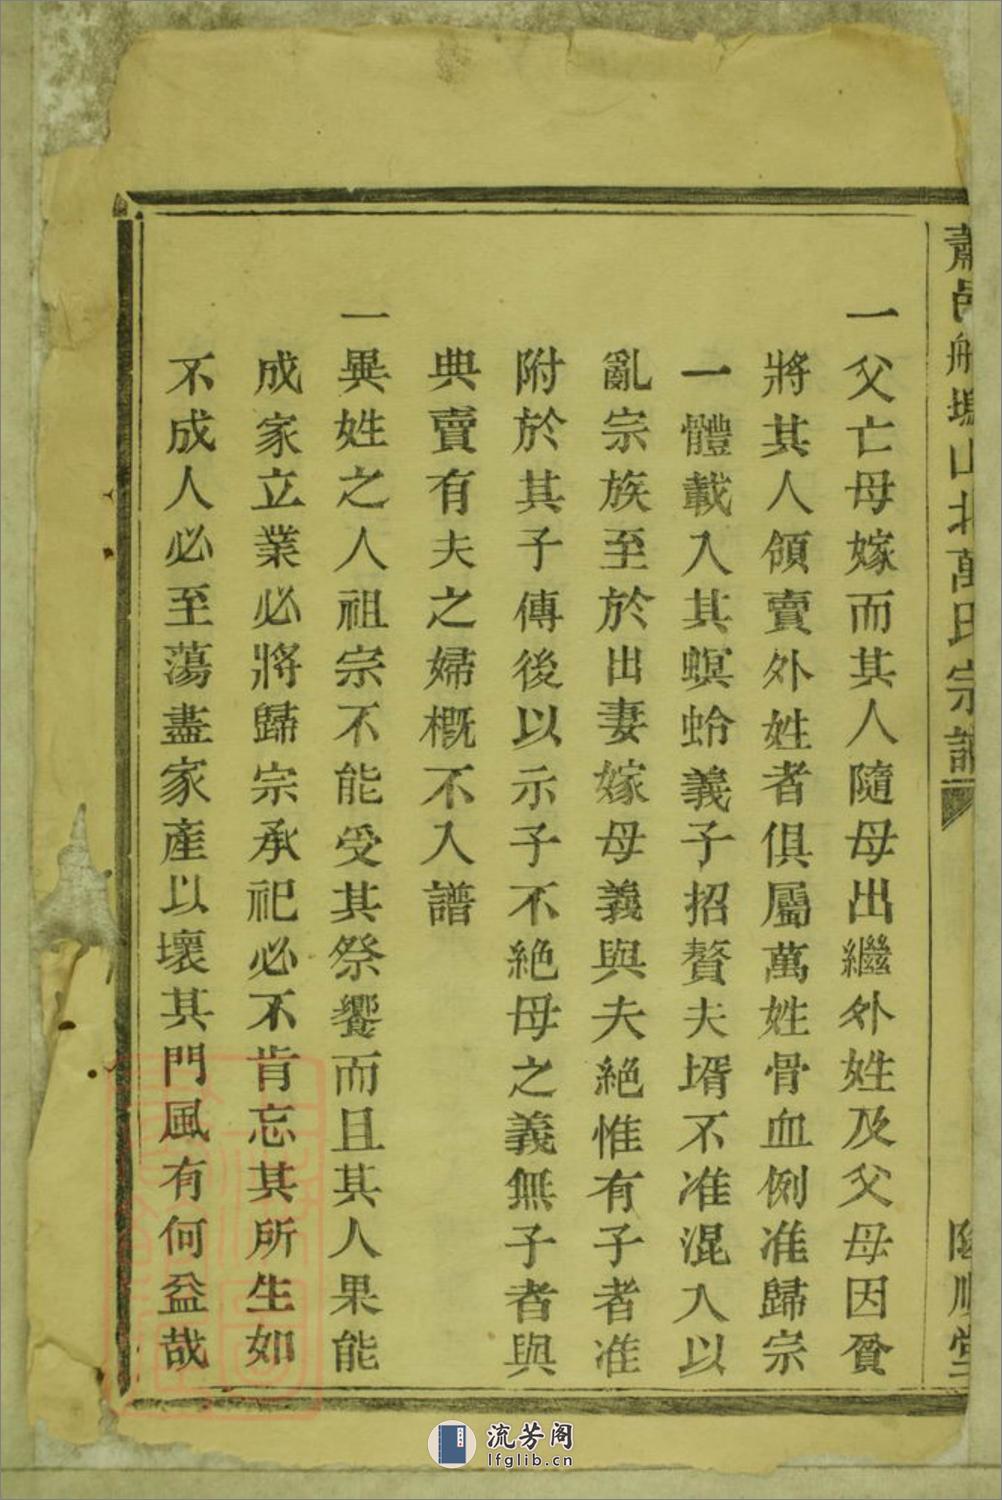 蕭邑船塢山北萬氏宗譜
順堂
一父亡母嫁而其人隨母出繼外姓及父母因貧
將其人領賣外姓者俱屬萬姓骨血例准歸宗
一體載入其螟蛉義子招贅夫壻不准混入以
亂宗族至於出妻嫁母義與夫絶惟有子者准
附於其子傳後以示子不絶母之義無子者與
典賣有夫之婦概不入譜
一異姓之人祖宗不能受其祭饗而且其人果能
成家立業必將歸宗承祀必不肯忘其所生如
不成人必至蕩盡家產以壞其門風有何益哉
流芳阁
lfglib.cn